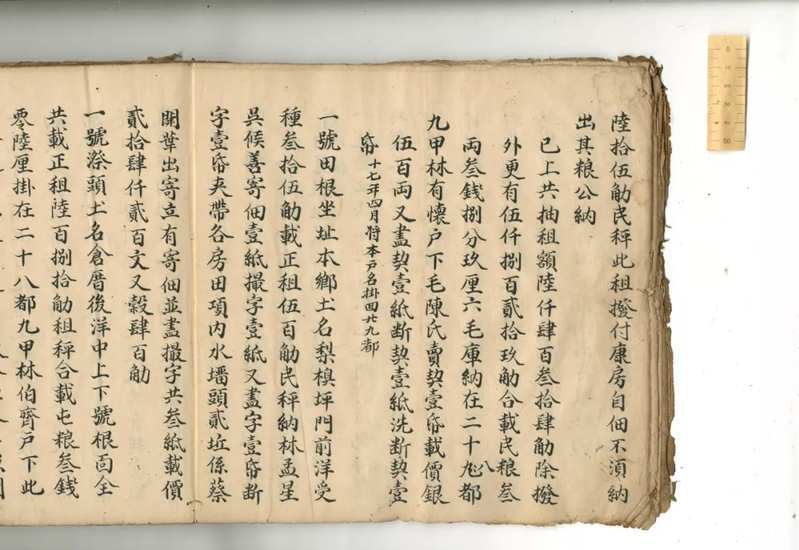 陸拾伍觔民秤此租撥付康房自佃不湏納
出其粮公納
已上共抽租額陸仟肆百叁拾肆觔除撥
外更有伍仟捌百貳拾玖觔合載民粮叁
両叁錢捌分玖厘六毛庫納在二十八都
九甲林有懷户下毛陳氏賣契壹昏載價銀
伍百両又盡契壹紙断契壹紙洗断契壹
昏十七年四月將本户名掛回廿九都
一號田根坐址本鄉土名梨模坪門前洋受
種叁拾伍觔載正租伍百觔民秤納林孟星
吳候善寄佃壹紙撮字壹紙又盡字壹昏断
字壹昏夹帶各房田項內水墻頭貳坵係蔡
開葉出寄立有寄佃並盡撮字共叁紙載價
貳拾肆仟貳百文又榖肆百觔
一號漈頭土名倉厝後洋中上下號根面全
共載正租陸百捌拾觔租秤合載屯粮叁錢
零陸厘掛在二十八都九甲林伯齊户下此